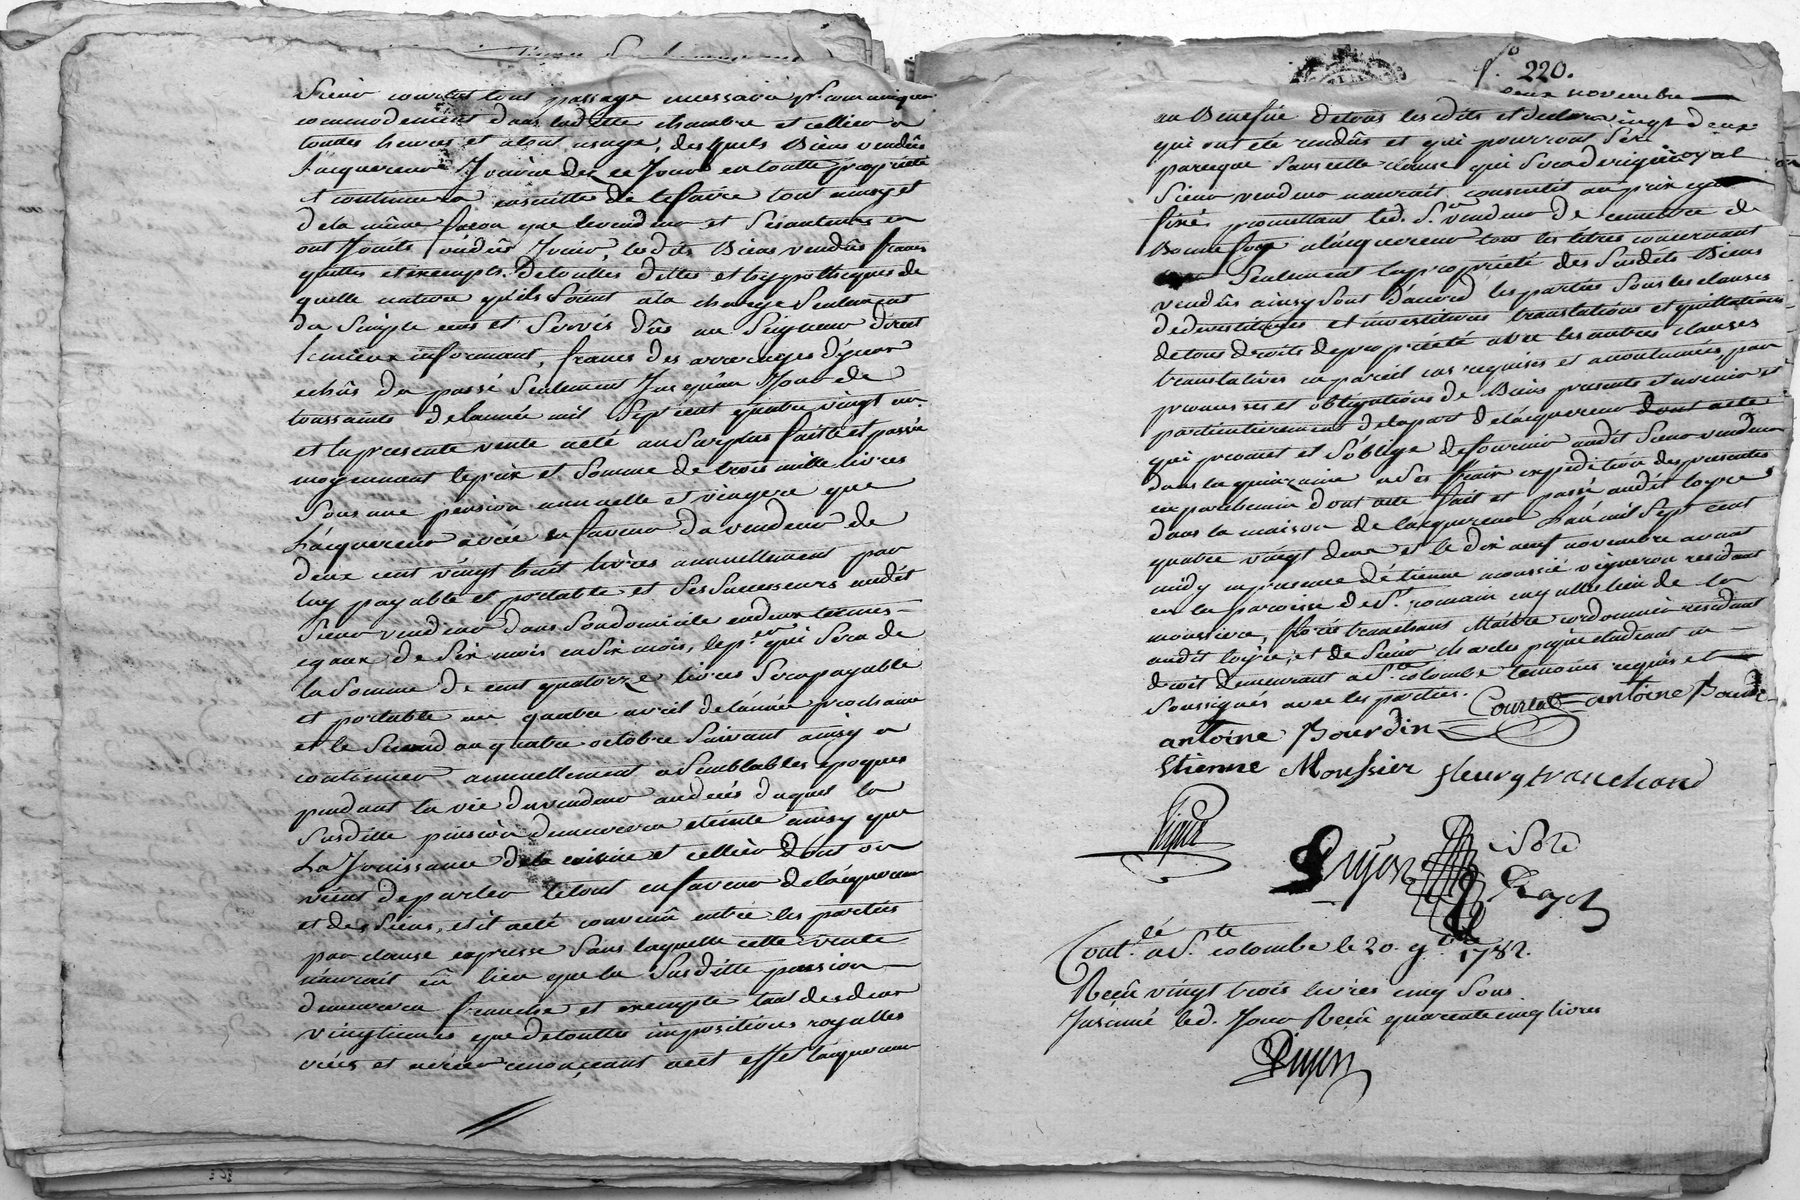 Sieur courtat tout passage necessaire pr. communiquer
commodement dans laditte chambre et cellier a
toutes heures et atout usage, desquels Biens vendûs
l'acquereur Jouira dès ce Jour en toutte propriété
et continuera ensuitte de le faire tout ainsy et
dela même facon que le vendeur et ses auteurs en
ont Jouits ou dûs Jouir, lesdits Biens vendûs francs
quittes et exempts de touttes dettes et hypotheques de
quelle nature qu'ils soient a la charge seulement
du simple cens et servis dûs au Seigneur direct
le mieux informant, francs des arrerages d'yceux
echûs du passé seulement Jusqu'au Jour de
toussaints delannée mil sept cent quatre vingt un
et la presente vente a eté au surplus faitte et passée
moyennant le prix et somme de trois mille livres
sous une pension annuelle et viagere que
L'acquereur a créé en faveur du vendeur de
deux cent vingt huit livres annuellement par
luy payable et portable et ses successeurs audit
Sieur vendeur dans son domicile en deux termes
egaux de six mois en six mois, le pr.er qui sera de
la somme de cent quatorze livres sera payable
et portable au quatre avril de lannée prochaine
et le second au quatre octobre suivant ainsy a
continuer annuellement a semblables epoques
pendant la vie du vendeur au decés duquel la
susditte pension demeurera eteinte ainsy que
La Jouissance dela cuisine et cellier dont on
vient de parler le tout en faveur de l'acquereur
et des siens, et il a eté convenû entre les parties
par clause expresse sans laquelle cette vente
n'auroit eû lieu que la susditte pension
demeurera franche et exempte tant des deux
vingtiemes que de touttes impositions royalles
créés et a créer renonçeant a cet effet l'acquereur
fo. 220.
deux novembre
au Benefice de tous les edits et declara vingt deux
qui ont été rendûs et qui pourront l'être
parceque sans cette clause qui sera de rigueur royal
Sieur vendeur nauroit consentit au prix cy
fixé, promettant led. Sr. vendeur de remettre de
Bonne foy a l'acquereur tous les titres concernant
seulement la proprieté des susdits Biens
vendûs ainsy sont d'acord les parties sous les clauses
de devestitures et investitures translations et quittations
de tous droits de proprieté avec les autres clauses
translatives en pareil cas requises et accoutumées, par
promesses et obligations de Biens presents et avenir et
particulierement dela part de l'acquereur dont acte
qui promet et s'oblige de fournir audit Sieur vendeur
dans la quinzaine a ses frais expedition des presentes
en parchemin dont acte fait et passé audit loyre
dans la maison de l'acquereur L'an mil sept cent
quatre vingt deux et le dix neuf novembre avant
midy en presence d'étienne moussié vigneron residant
en la paroisse de St. romain en galle lieu de la
moussiere, fleris tranchant Maitre cordonnier residant
audit loyre, et de Sieur charles pique etudiant en
droit demeurant a Ste. colombe temoins requis et
soussignés avec les parties. Courtat antoine Bourdi
antoine Bourdin
Etienne Moussier fleury tranchand
Pique
Dujon
Cont.lé a Ste. colombe le 20. 9bre 1782.
Reçû vingt trois livres cinq sous
Insinué led. Jour Reçû quarente cinq livres
Dujon